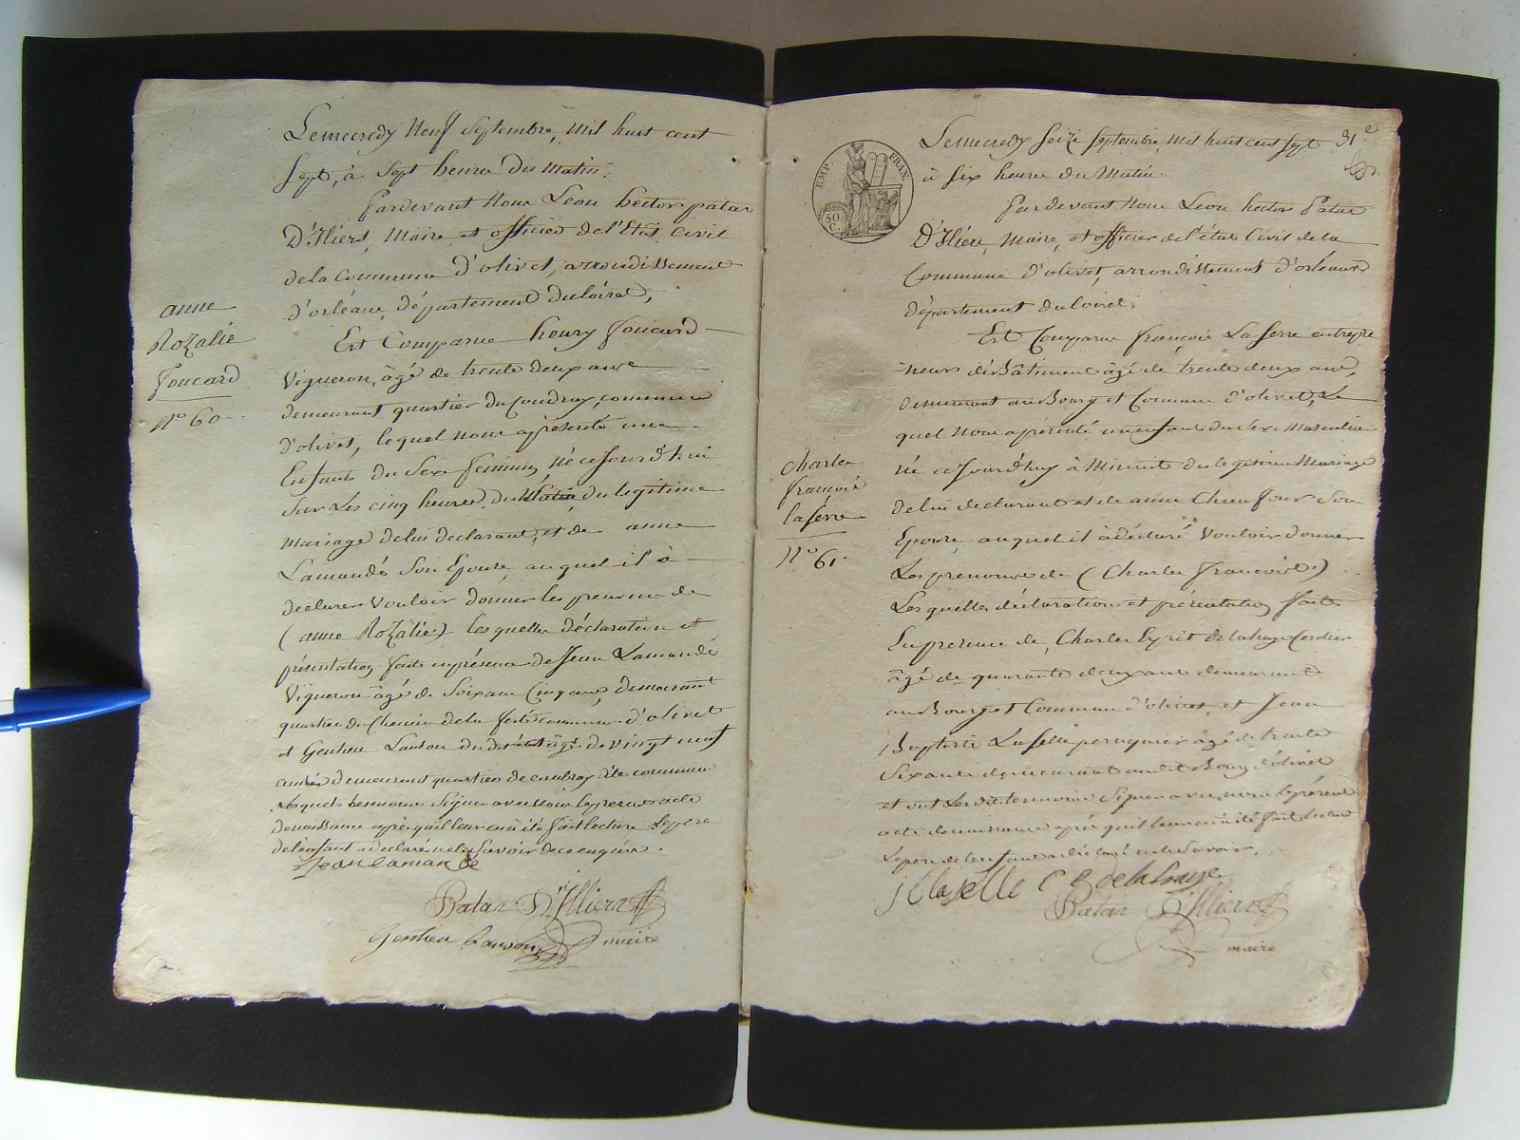 Le mecredy Neuf Septembre, Mil huit cent
Sept, à Sept heures du Matin.
Pardevant Nous Leon hector patas
D'Illiers, Maire, et officier de l'Etat Civil
de la Commune d'olivet, arrondissement
d'orléans, département du loiret,
Est Comparue henry foucard
Vigneron, âgé de trente deux ans
demeurant quartier du Coudray, commune
d'olivet, lequel nous a présenté une
Enfant du Sexe feminin, né ce jourd'hui
Sur Les cinq heures du Matin du legitime
mariage de lui déclarant, et de anne
Lamandé Son Epouse, auquel il à
déclarer Vouloir donner les prenoms de
(anne Rozalie) lesquelles déclaration et
présentation faite en présence de Jean Lamandé
Vigneron âgé de Soixante Cinq ans, demeurant
quartier du Chemin de la ferté commune d'olivet
et Gentien âgé de vingt neuf
années demeurant quartier de coudray dite commune
lesquels temoins Signer avec nous le présent acte
de naissance après qu'il leur en à été fait lecture le père
de l'enfant a déclaré ne le Savoir de ce enquis.
Jean lamandé
Patas D'illiers
Gentien
maire
anne
Rozalie
foucard
N° 60
31e
Le mecredy Seize Septembre, Mil huit cent Sept
à Six heures du Matin.
EMP. FRAN.
50 C.
Pardevant Nous Leon hector Patas
D'Illiers, Maire, et officier de l'état Civil de la
Commune d'olivet, arrondissement d'orléans
département du loiret.
Est Comparue françois Laserre entrepre
neur de Bâtiment âgé de trente deux ans,
demeurant au Bourg et Commune d'olivet, Le
quel Nous a présenté un enfant du Sexe Masculin
né ce jourd'huy à Minuit du legitime Mariage
de lui declarant et de anne Son
Epouse, auquel il à déclaré Vouloir donner
Les prenoms de (Charles françois)
Lesquelles déclaration et présentation faite
En presence de, Charles Esprit Delahaye Cordier
âgé de quarante deux ans demeurant
au Bourg et Commune d'olivet, et Jean
Baptiste Laselle perruquier âgé de trente
Six ans demeurant audit Bourg d'olivet
et ont Les dits temoins Signer avec nous le présent
acte de naissance après qu'il leur en à été fait lecture
Le père de l'enfant a déclaré ne le Savoir.
Charles
françois
laserre
N° 61
J B laselle C E delahaye
Patas D'illiers
maire